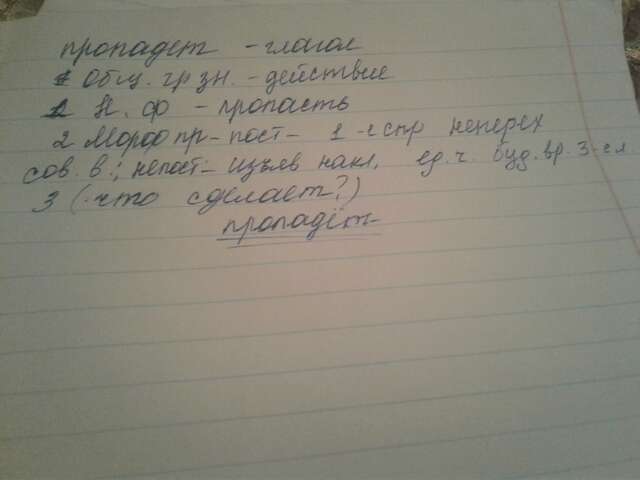 пропадет - глагол
1 Общ. гр зн. - действие
Н. ф - пропасть
2 Морф пр- пост- 1-е спр неперех
сов. в.; непост- изъяв накл, ед. ч. буд. вр. 3-е л
3 (что сделает?)
пропадёт